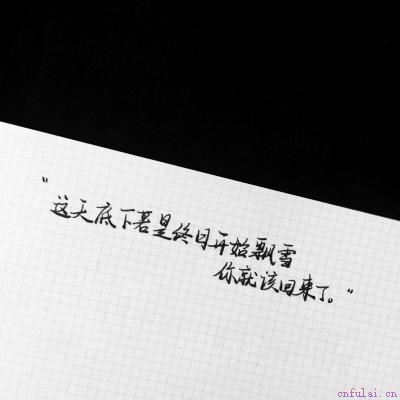 “这天底下若是终日开始飘雪
你就该回来了。”
cnfulai.cn